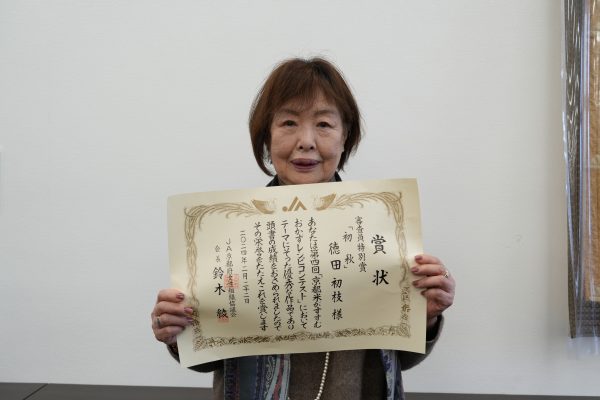 賞状
審査員特別賞
「初秋」
徳田初枝様
あなたは第四回「京都米がすすむ
おかずレシピコンテスト」において
テーマにそった優秀な作品であり
頭書の成績をおさめられましたので
その栄誉をたたえこれを賞します
二〇二四年二月二十二日
JA京都府女性組織協議会
会長 鈴木